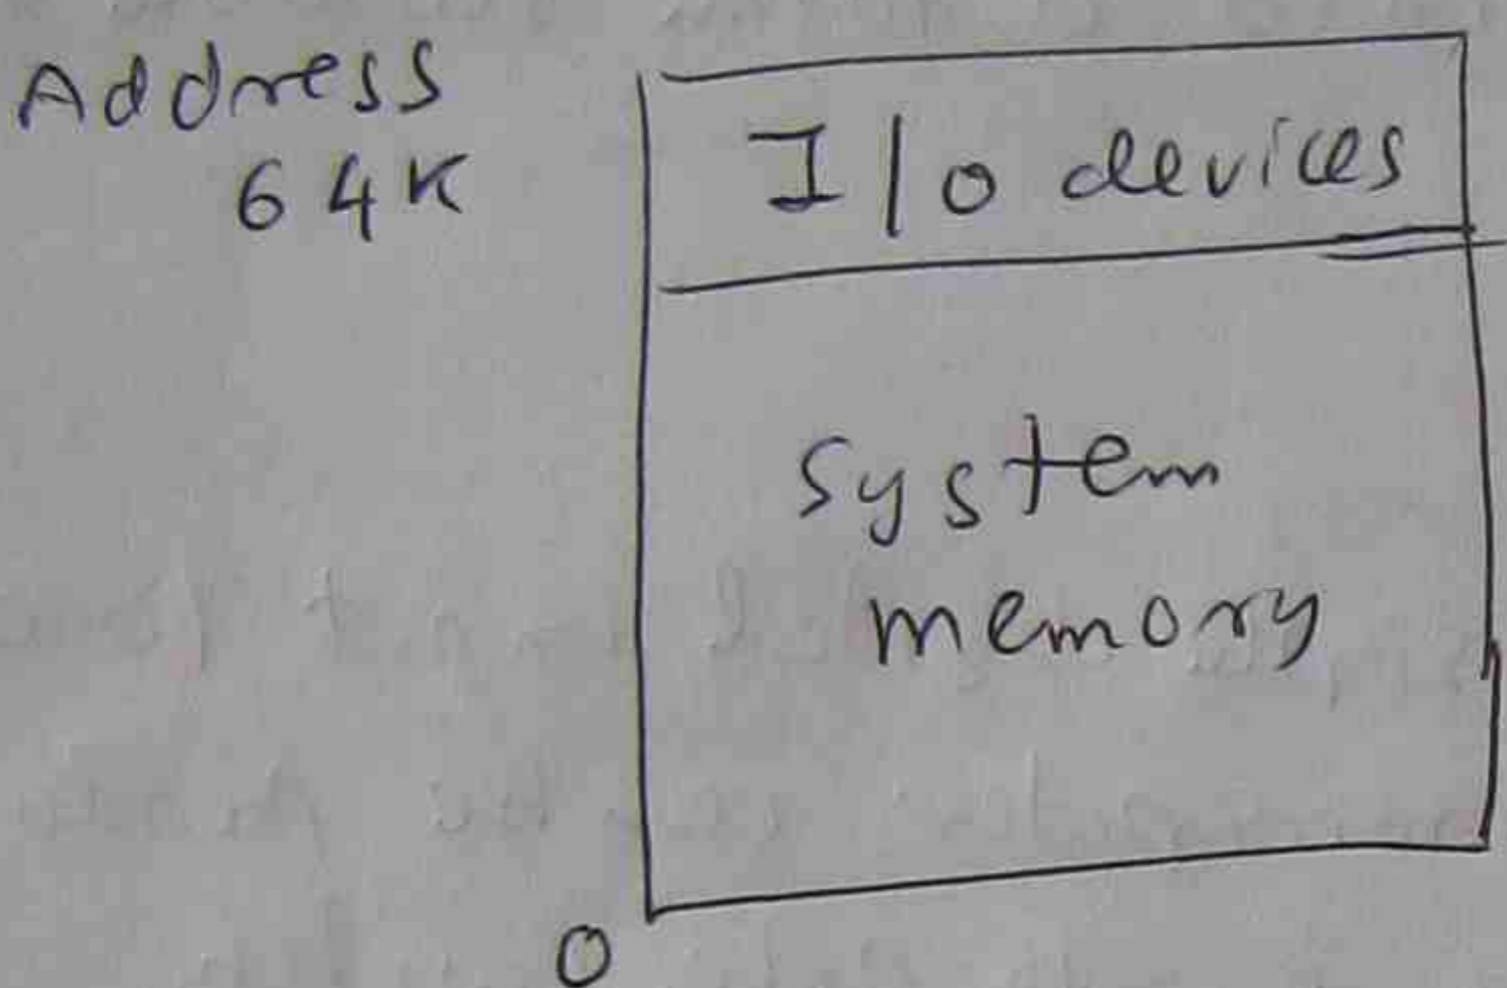 Address
64K
I/o devices
system
memory
0